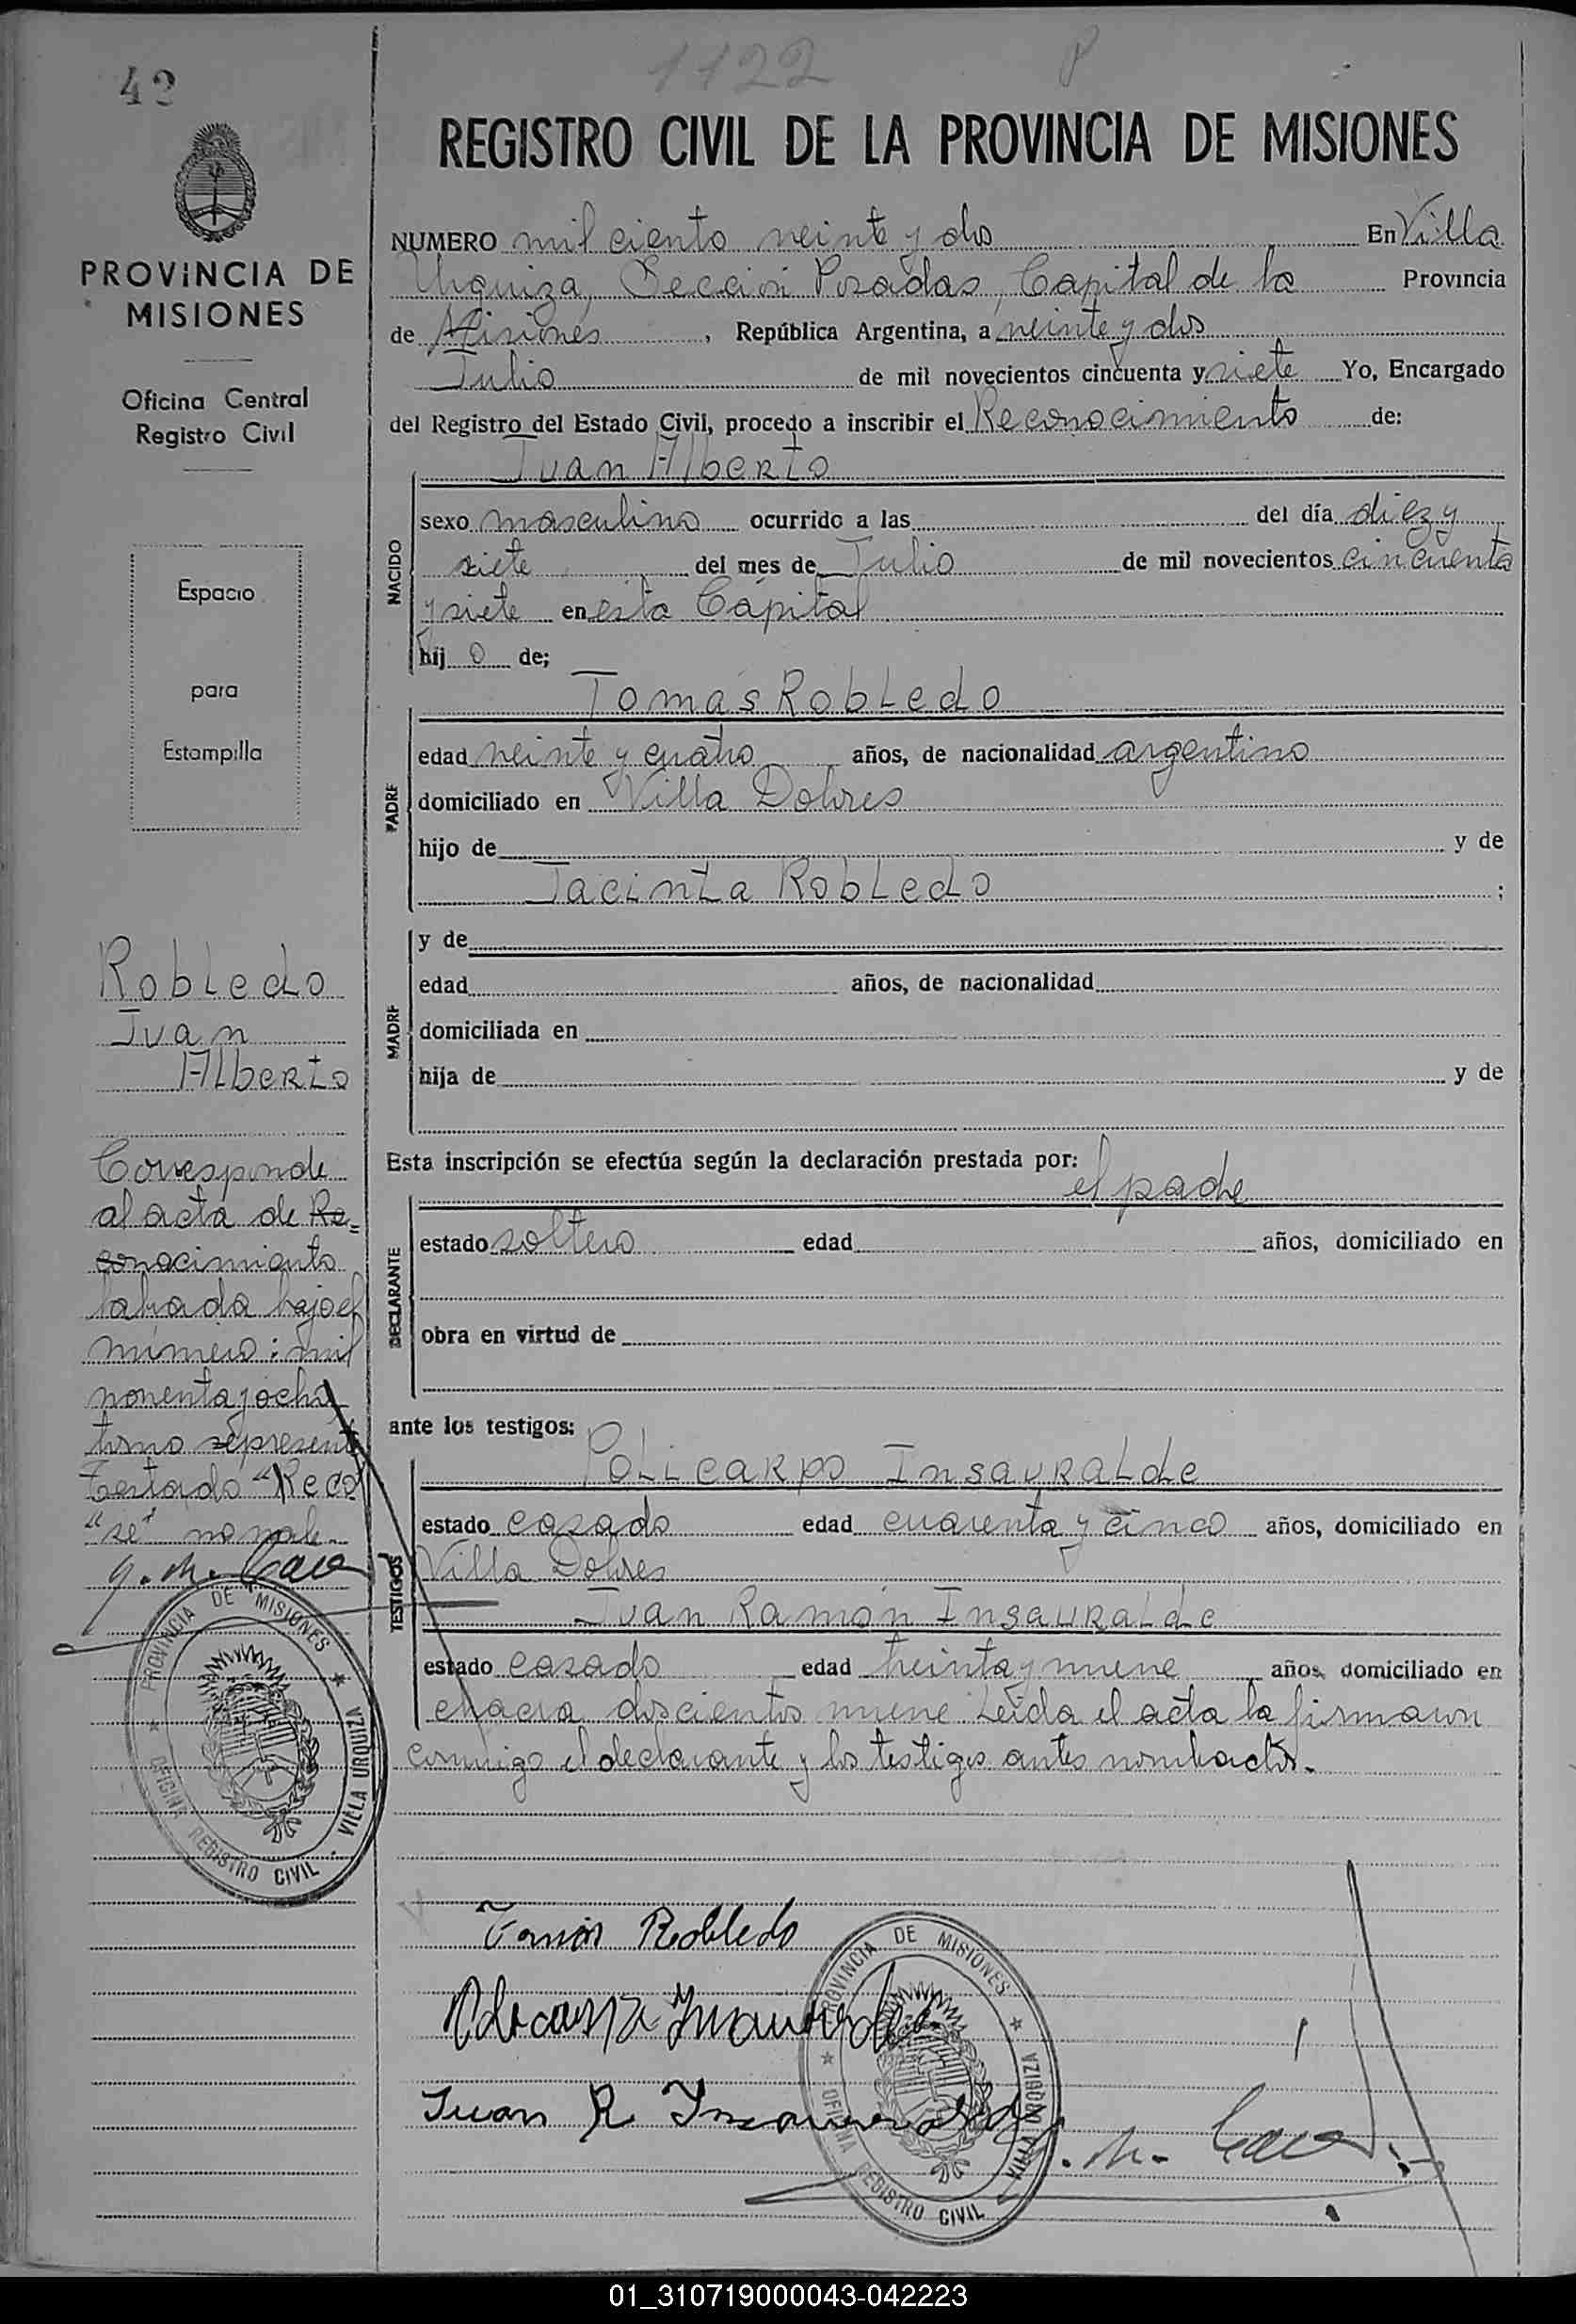 1122 P
42
REGISTRO CIVIL DE LA PROVINCIA DE MISIONES
PROVINCIA DE
MISIONES
Oficina Central
Registro Civil
Espacio
para
Estampilla
Robledo
Juan
Alberto
Corresponde
al acta de Re=
conocimiento
labrada bajo el
número: mil
noventa y ocho
tomo represent
Testado "Reco"
"re" no vale.-
PROVINCIA DE MISIONES
OFICINA REGISTRO CIVIL
VILLA URQUIZA
NUMERO mil ciento veinte y dos En Villa
Urquiza, Sección Posadas, Capital de la Provincia
de Misiones, República Argentina, a veinte y dos
Julio de mil novecientos cincuenta y siete Yo, Encargado
del Registro del Estado Civil, procedo a inscribir el Reconocimiento de:
Juan Alberto
NACIDO
sexo masculino ocurrido a las del día diez y
siete del mes de Julio de mil novecientos cincuenta
y siete en esta Capital
hij o de;
Tomás Robledo
PADRE
edad veinte y cuatro años, de nacionalidad argentino
domiciliado en Villa Dolores
hijo de y de
Jacinta Robledo ;
MADRE
y de
edad años, de nacionalidad
domiciliada en
hija de y de
Esta inscripción se efectúa según la declaración prestada por:
el padre
DECLARANTE
estado soltero edad años, domiciliado en
obra en virtud de
ante los testigos:
Policarpo Insauralde
TESTIGOS
estado casado edad cuarenta y cinco años, domiciliado en
Villa Dolores
Juan Ramón Insauralde
estado casado edad treinta y nueve años, domiciliado en
chacra doscientos nueve. Leída el acta la firmaron
conmigo el declarante y los testigos antes nombrados.-
Tomás Robledo
Policarpo Insauralde
Juan R Insauralde
PROVINCIA DE MISIONES
OFICINA REGISTRO CIVIL
VILLA URQUIZA
01_310719000043-042223